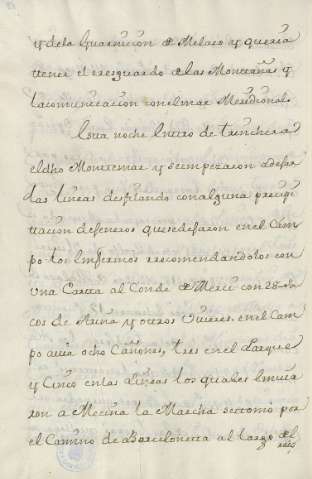 y dela Guarnicion de Melaso y queria
tener el resguardo de las Montañas y
la comunicacion con el mar Meridional
Esta noche entro de trinchera
el dho Montemar y se empezaron a defer
las lineas desfilando con alguna precipi
tacion defeneros quesedefaron en el Cam
po los Enfermos recomendandolos con
una Carta al Conde de Merci con 28
cos de Arina y otros viveres. en el Cam
po avia ocho Cañones, tres en el Parque
y Cinco en las Lineas los quales
ron a Mecina la Marcha se por
el Camino de Barcelonera al largo del